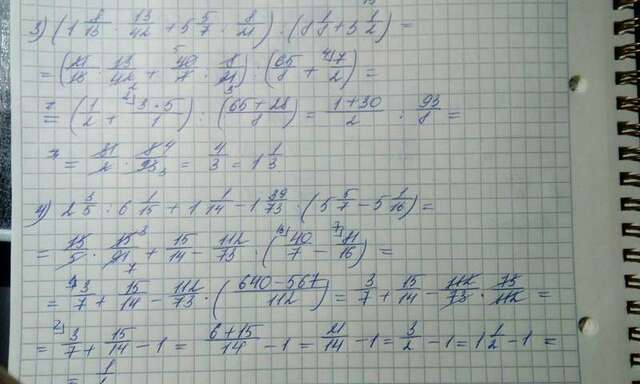 3) (1 8/13 · 13/42 + 5 5/7 · 8/21) : (8 1/8 + 3 1/2) =
= (21/13 · 13/42 + 40/7 · 8/21) : (65/8 + 7/2) =
= (1/2 + 3·5/1) : (65+28/8) = 1+30/2 : 93/8 =
= 31/2 · 8/93 = 4/3 = 1 1/3
4) 2 3/5 : 6 1/15 + 1 1/14 - 1 39/73 · (5 5/7 - 5 1/16) =
= 13/5 · 15/91 + 15/14 - 112/73 · (40/7 - 81/16) =
= 3/7 + 15/14 - 112/73 · (640-567/112) = 3/7 + 15/14 - 112/73 · 73/112 =
= 3/7 + 15/14 - 1 = 6+15/14 - 1 = 21/14 - 1 = 3/2 - 1 = 1 1/2 - 1 =
=